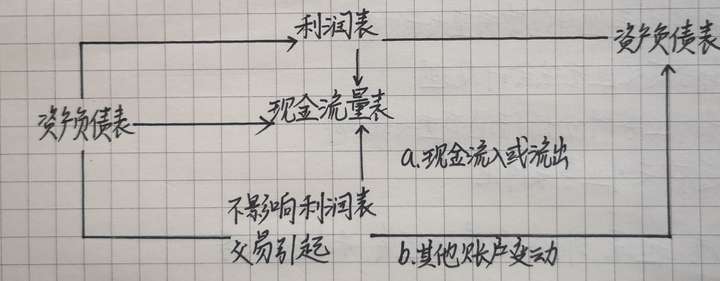 利润表
资产负债表
资产负债表
现金流量表
a.现金流入或流出
不影响利润表
交易引起
b.其他账户变动